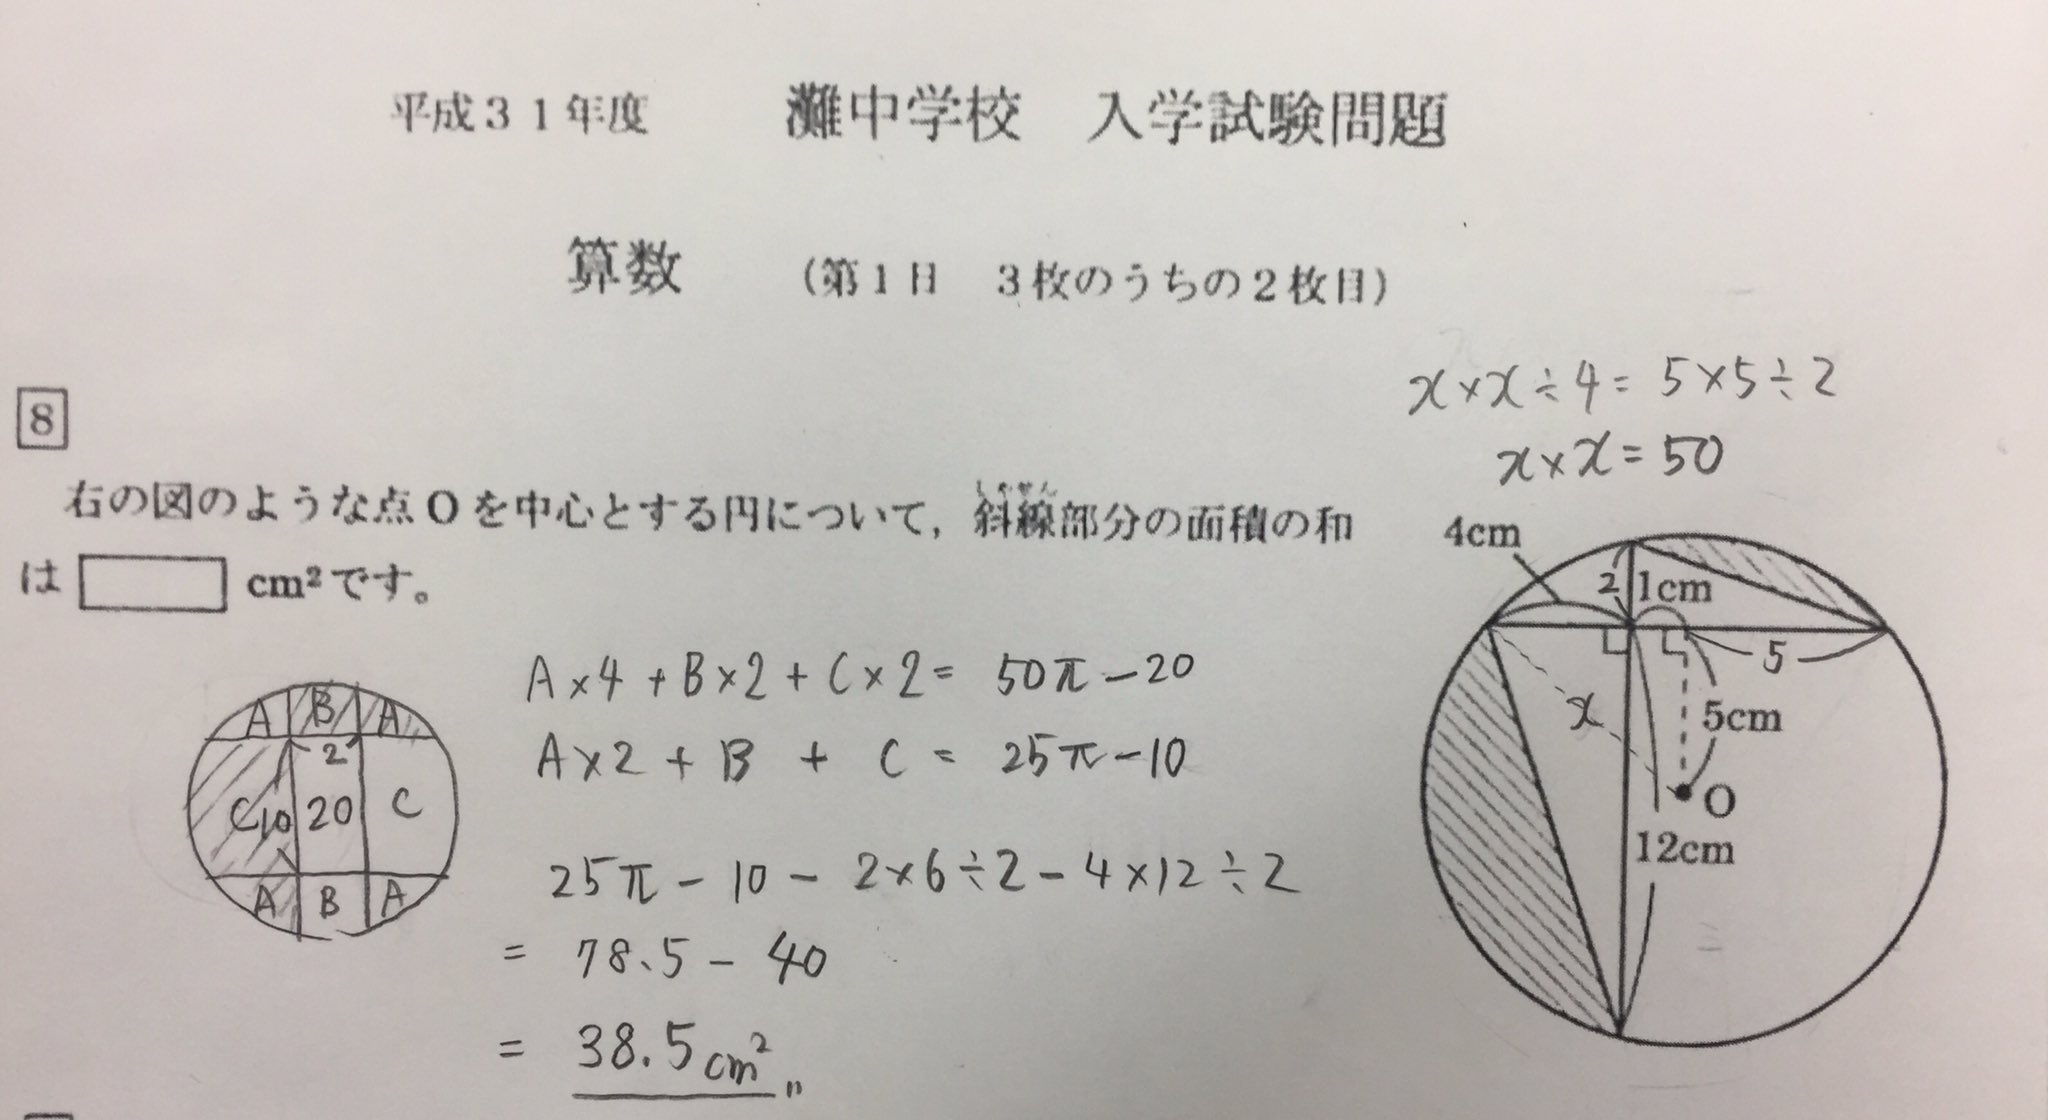 平成31年度 灘中学校 入学試験問題
算数 (第1日 3枚のうちの2枚目)
x×x÷4=5×5÷2
x×x=50
8
しゃせん
右の図のような点Oを中心とする円について,斜線部分の面積の和
は cm²です。
4cm
2 1cm
5
x
5cm
O
12cm
A B A
2
C 10 20 C
A B A
A×4+B×2+C×2=50π-20
A×2+B+C=25π-10
25π-10-2×6÷2-4×12÷2
=78.5-40
=38.5cm²〃